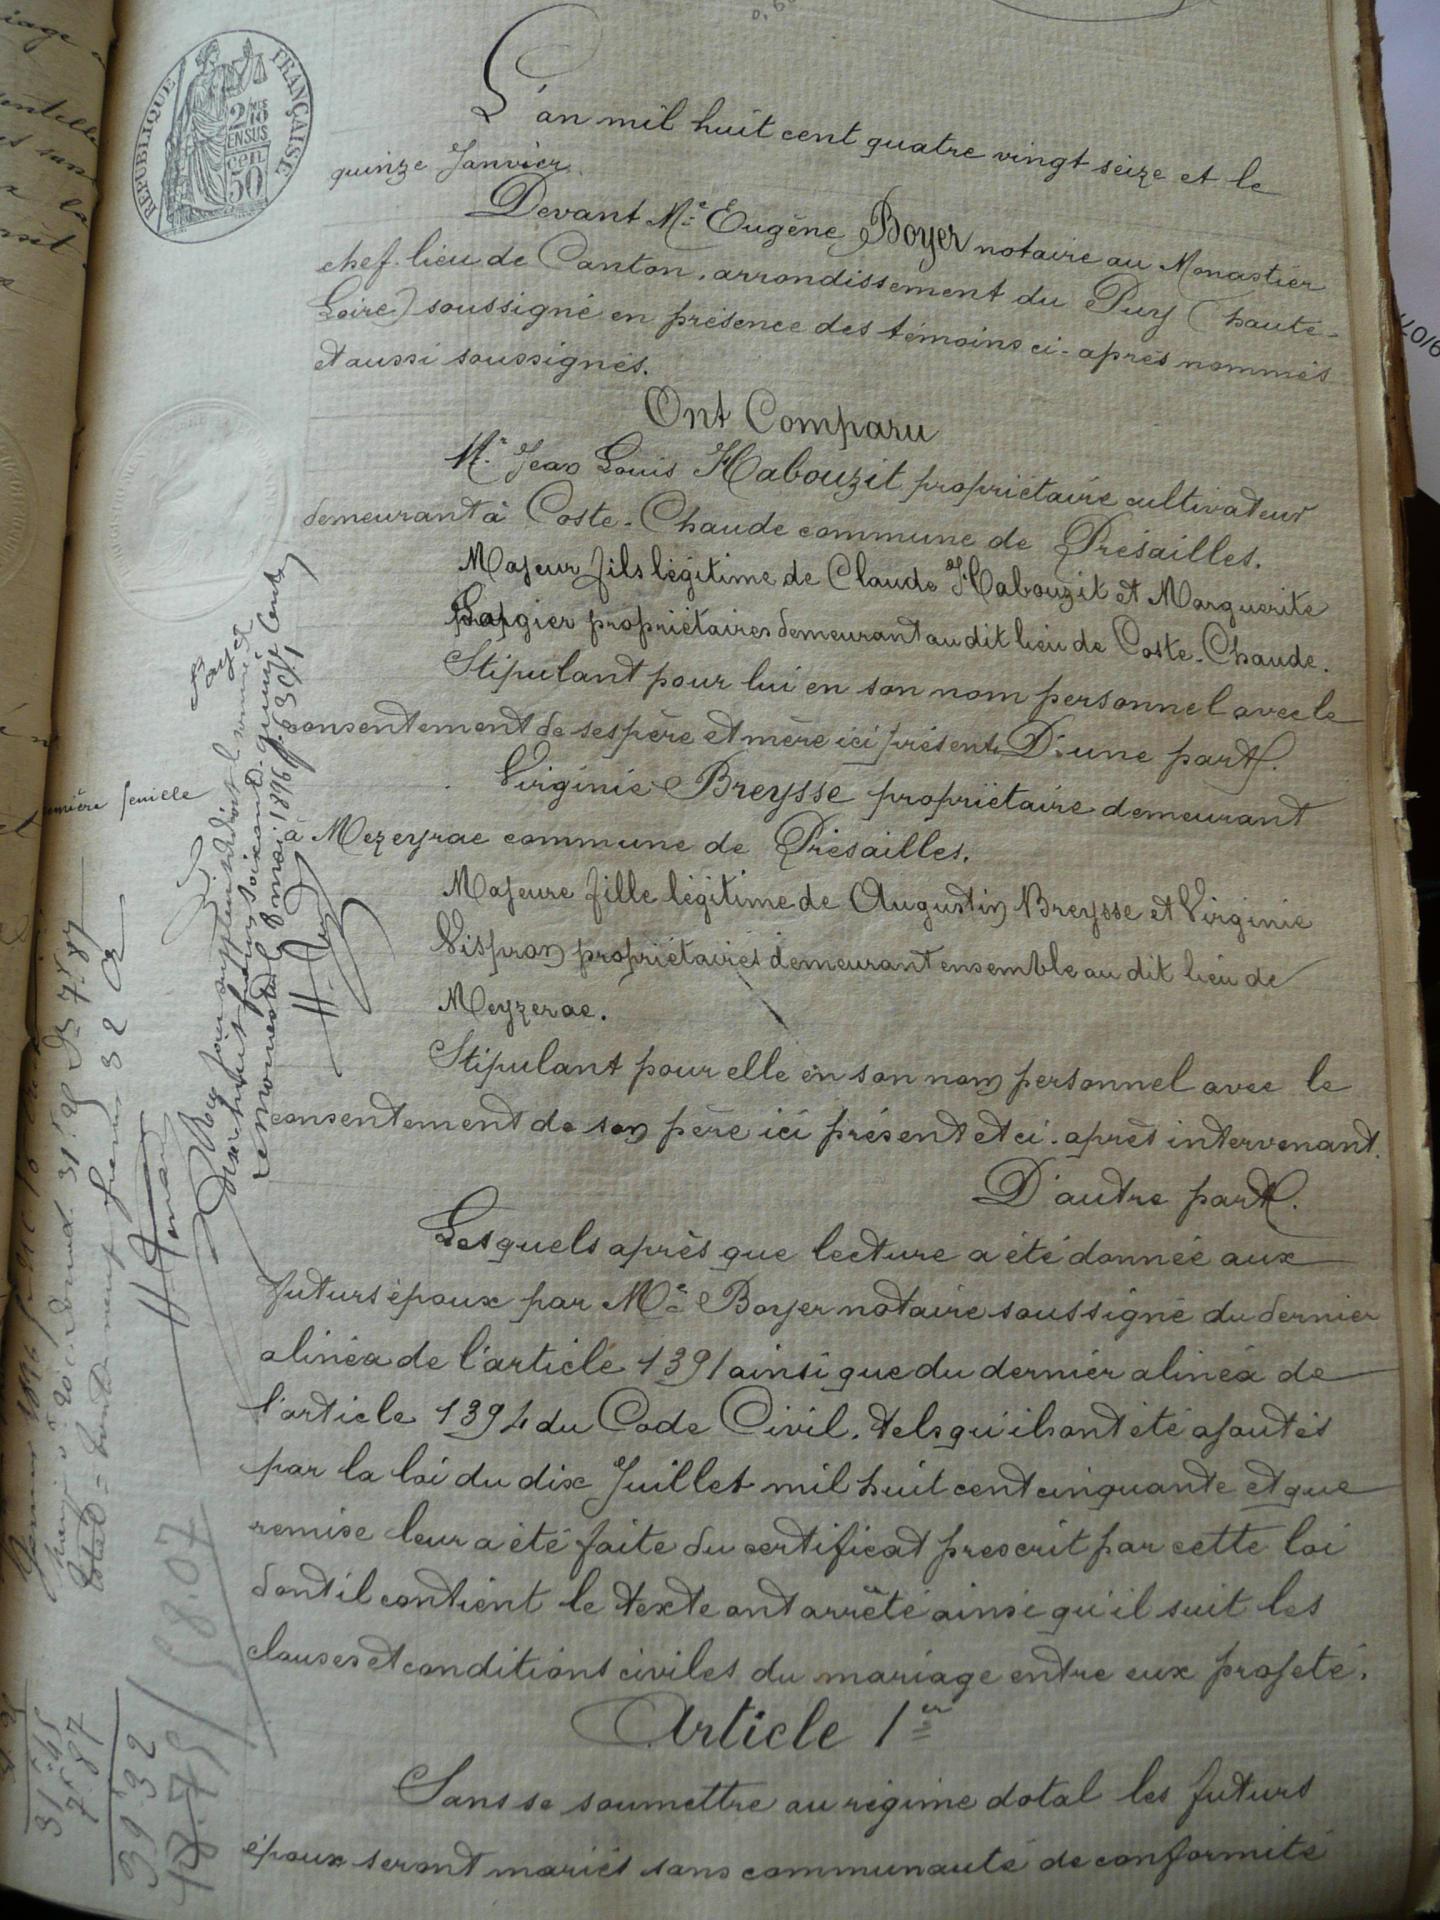 RÉPUBLIQUE FRANÇAISE
2/10 MES
EN SUS
50 cen
L'an mil huit cent quatre vingt seize et le
quinze Janvier.
Devant Me Eugène Boyer notaire au Monastier
chef-lieu de Canton, arrondissement du Puy (haute-
Loire) soussigné en présence des témoins ci-après nommés
et aussi soussignés.
Ont Comparu
Mr. Jean Louis Habouzit propriétaire cultivateur
demeurant à Coste-Chaude commune de Présailles.
Majeur fils légitime de Claude Habouzit et Marguerite
propriétaires demeurant au dit lieu de Coste-Chaude.
Stipulant pour lui en son nom personnel avec le
consentement de ses père et mère ici présents D'une part.
Virginie Breysse propriétaire demeurant
à Mezeyrac commune de Présailles.
Majeure fille légitime de Augustin Breysse et Virginie
Vispron propriétaires demeurant ensemble au dit lieu de
Meyzerac.
Stipulant pour elle en son nom personnel avec le
consentement de son père ici présent et ci-après intervenant.
D'autre part.
Lesquels après que lecture a été donnée aux
futurs époux par Me Boyer notaire soussigné du dernier
alinéa de l'article 1391 ainsi que du dernier alinéa de
l'article 1394 du Code Civil, tels qu'ils ont été ajoutés
par la loi du dix Juillet mil huit cent cinquante et que
remise leur a été faite du certificat prescrit par cette loi
dont il contient le texte ont arrêté ainsi qu'il suit les
clauses et conditions civiles du mariage entre eux projeté.
Article 1er
Sans se soumettre au régime dotal les futurs
époux seront mariés sans communauté de conformité
feuille
1896
58.07
31.45
7.87
39.32